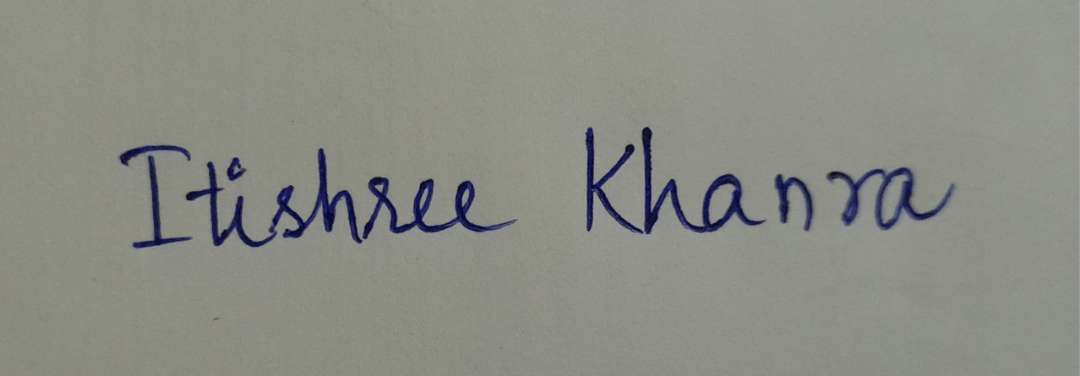 Itishree Khanra